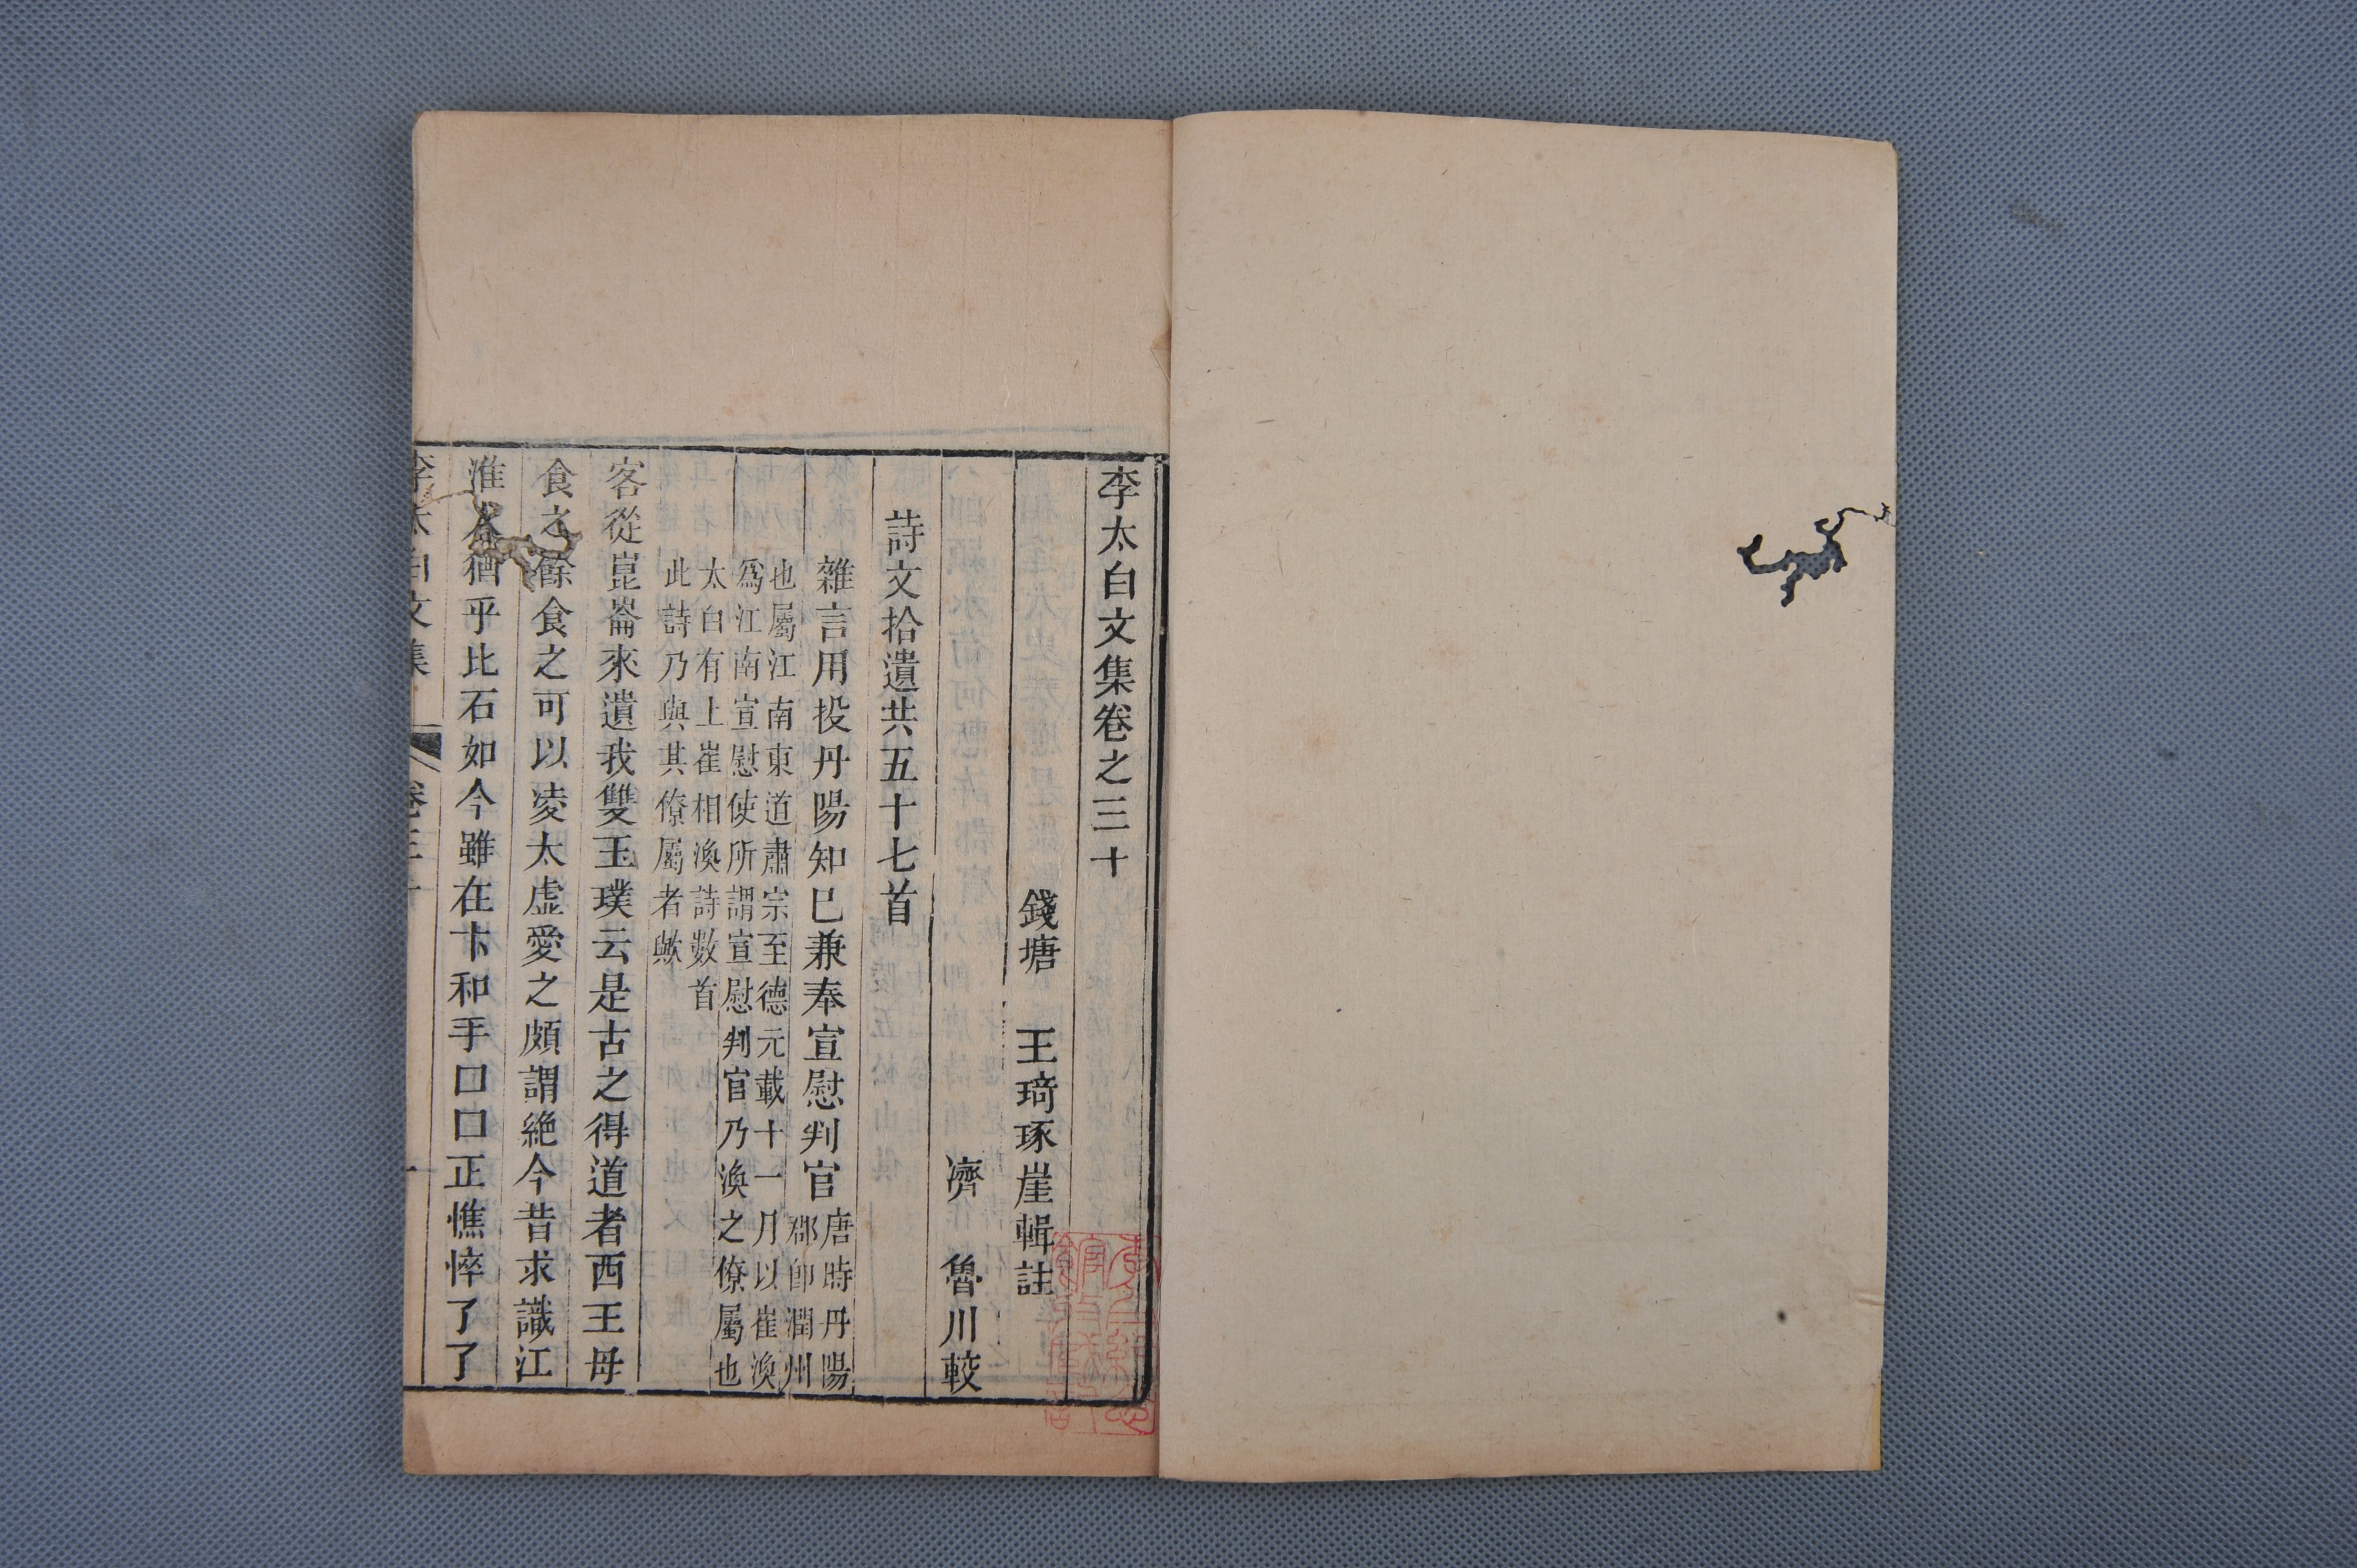 李太白文集卷之三十
錢塘 王琦琢崖輯註
濟 魯川較
詩文拾遺共五十七首
雜言用投丹陽知已兼奉宣慰判官
唐時丹陽
郡卽潤州
也屬江南東道肅宗至德元載十一月以崔渙
爲江南宣慰使所謂宣慰判官乃渙之僚屬也
太白有上崔相渙詩數首
此詩乃與其僚屬者歟
客從崑崙來遺我雙玉璞云是古之得道者西王母
食之餘食之可以凌太虛愛之頗謂絕今昔求識江
淮人猶乎比石如今雖在卞和手口口正憔悴了了
李太白文集
卷三十
一